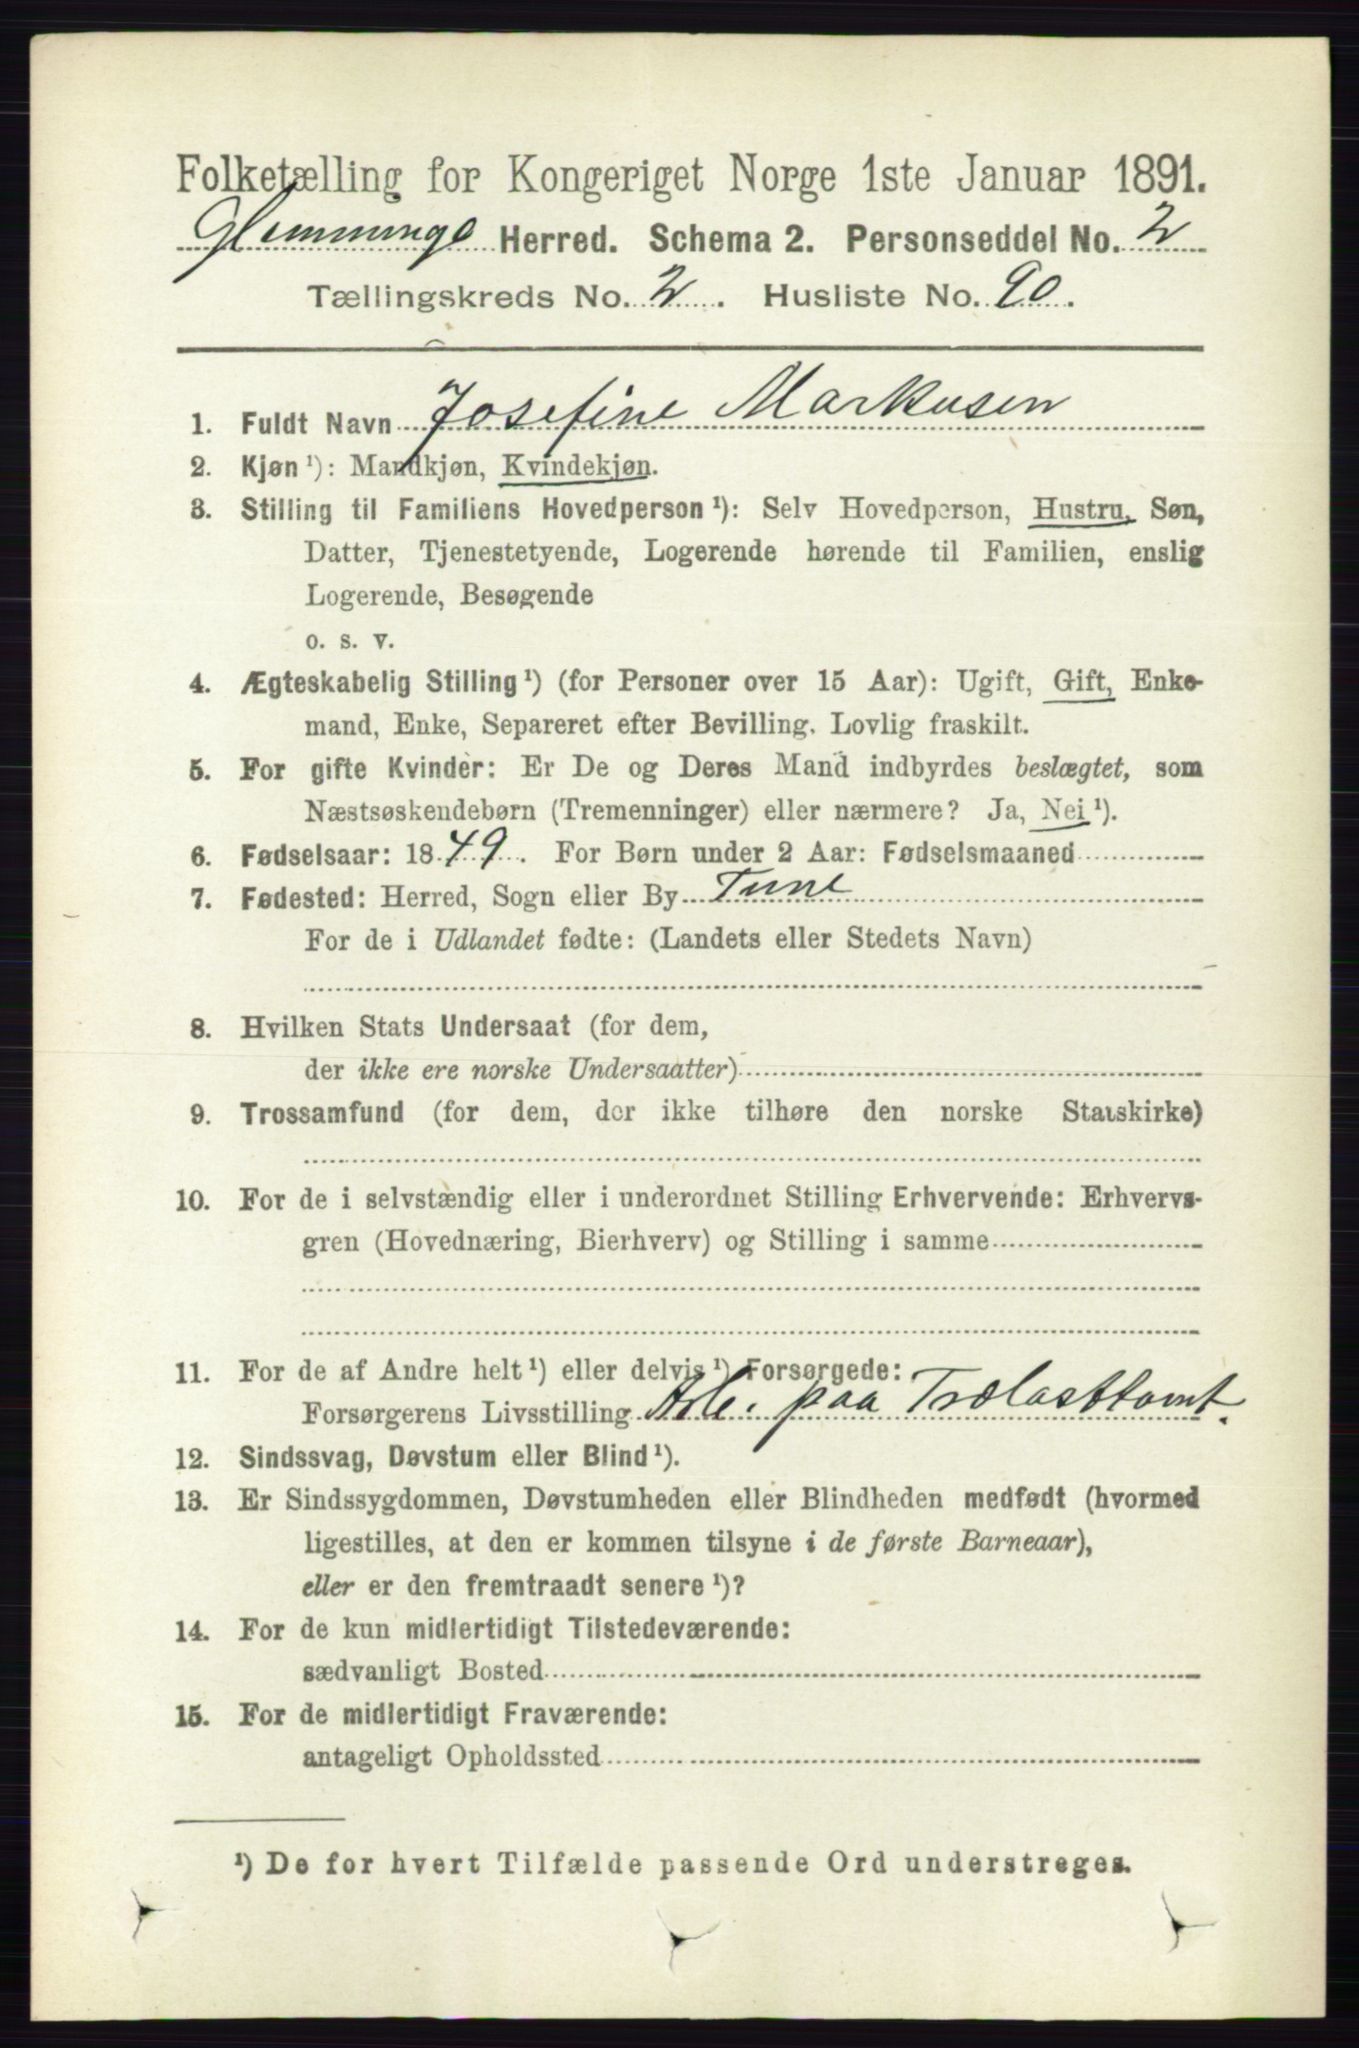 Folketælling for Kongeriget Norge 1ste Januar 1891.
Glemminge Herred. Schema 2. Personseddel No. 2
Tællingskreds No. 2. Husliste No. 90.
1. Fuldt Navn Josefine Markusen
2. Kjøn¹): Mandkjøn, Kvindekjøn.
3. Stilling til Familiens Hovedperson¹): Selv Hovedperson, Hustru, Søn,
Datter, Tjenestetyende, Logerende hørende til Familien, enslig
Logerende, Besøgende
o. s. v.
4. Ægteskabelig Stilling¹) (for Personer over 15 Aar): Ugift, Gift, Enke-
mand, Enke, Separeret efter Bevilling. Lovlig fraskilt.
5. For gifte Kvinder: Er De og Deres Mand indbyrdes beslægtet, som
Næstsøskendebørn (Tremenninger) eller nærmere? Ja, Nei¹).
6. Fødselsaar: 1849. For Børn under 2 Aar: Fødselsmaaned
7. Fødested: Herred, Sogn eller By Tune
For de i Udlandet fødte: (Landets eller Stedets Navn)
8. Hvilken Stats Undersaat (for dem,
der ikke ere norske Undersaatter)
9. Trossamfund (for dem, der ikke tilhøre den norske Statskirke)
10. For de i selvstændig eller i underordnet Stilling Erhvervende: Erhvervs-
gren (Hovednæring, Bierhverv) og Stilling i samme
11. For de af Andre helt¹) eller delvis¹) Forsørgede:
Forsørgerens Livsstilling Arb. paa Trælasttomt.
12. Sindssvag, Døvstum eller Blind¹).
13. Er Sindssygdommen, Døvstumheden eller Blindheden medfødt (hvormed
ligestilles, at den er kommen tilsyne i de første Barneaar),
eller er den fremtraadt senere¹)?
14. For de kun midlertidigt Tilstedeværende:
sædvanligt Bosted
15. For de midlertidigt Fraværende:
antageligt Opholdssted
¹) De for hvert Tilfælde passende Ord understreges.